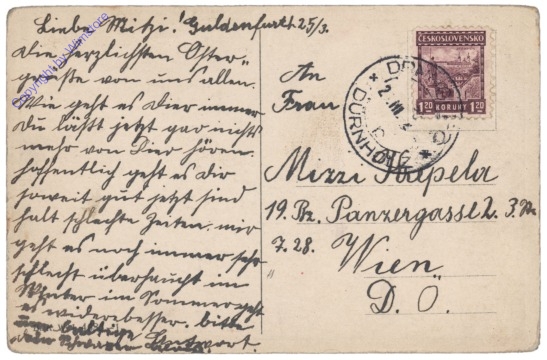 Liebe Mitzi! Guldenfurt 25/3.
Die herzlichsten Oster-
grüße von uns allen.
Wie geht es Dier immer
Du läßt jetzt gar nichts
mehr von Dier hören.
hoffentlich geht es dir
soweit gut jetzt sind
halt schlechte Zeiten. mir
geht es noch immer sehr
schlecht überhaupt im
Winter im Sommer geht
es wieder besser. bitte
um baltige Antwort
dein
Copyright by Wimstore
ČESKOSLOVENSKO
1.20 KORUNY 1.20
DÜRNHOLZ
An
Frau
Mizzi
19. Bz. Panzergasse 2. 3. St.
Z. 28. Wien
D. O.